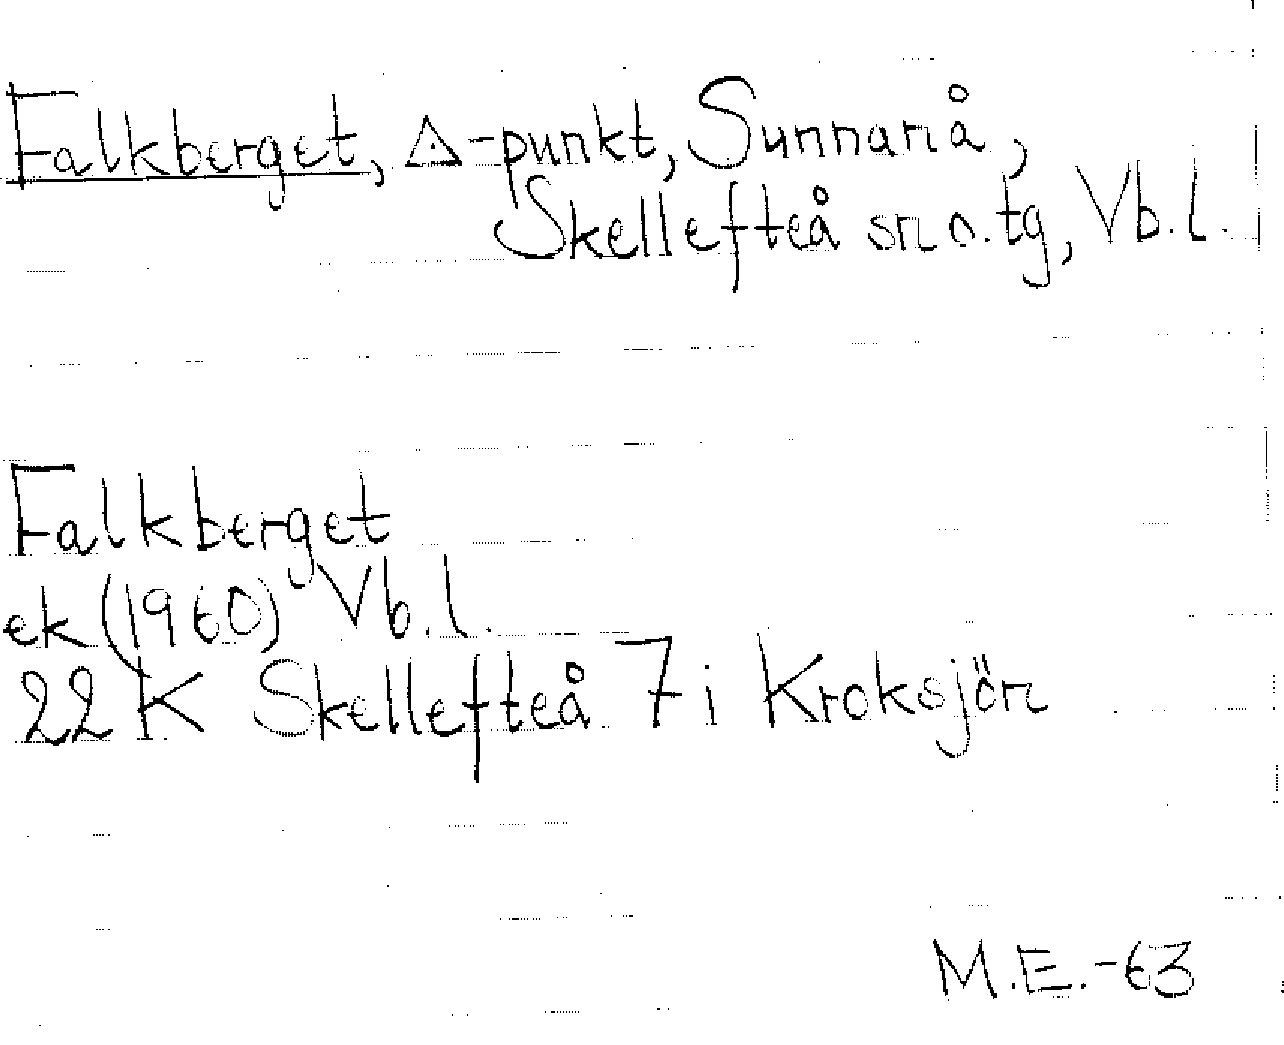 Falkberget, △-punkt, Sunnanå,
Skellefteå sn o. tg, Vb.l.
Falkberget
ek (1960) Vb.l.
22 K Skellefteå 7 i Kroksjön
M.E.-63